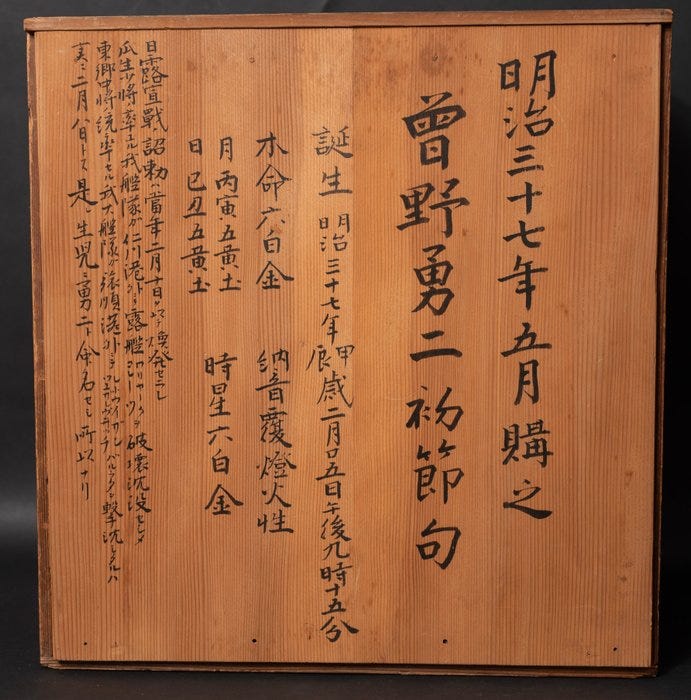 明治三十七年五月購之
曽野勇二初節句
誕生 明治三十七年甲辰歳二月 五日午後九時十五分
本命六白金 納音覆燈火性
月丙寅五黄土 時星六白金
日己丑五黄土
日露宣戦 詔勅ハ當年二月十日ヲ 煥発セラレ
瓜生少将ノ率ユル我艦隊ガ仁川港外ニ露艦 破壊沈没セシメ
東郷中将ノ統率セル我大艦隊ガ旅順港外ニ 撃沈シタルハ
実ニ二月八日トス是レ生児ニ勇二ト命名セシ所以ナリ